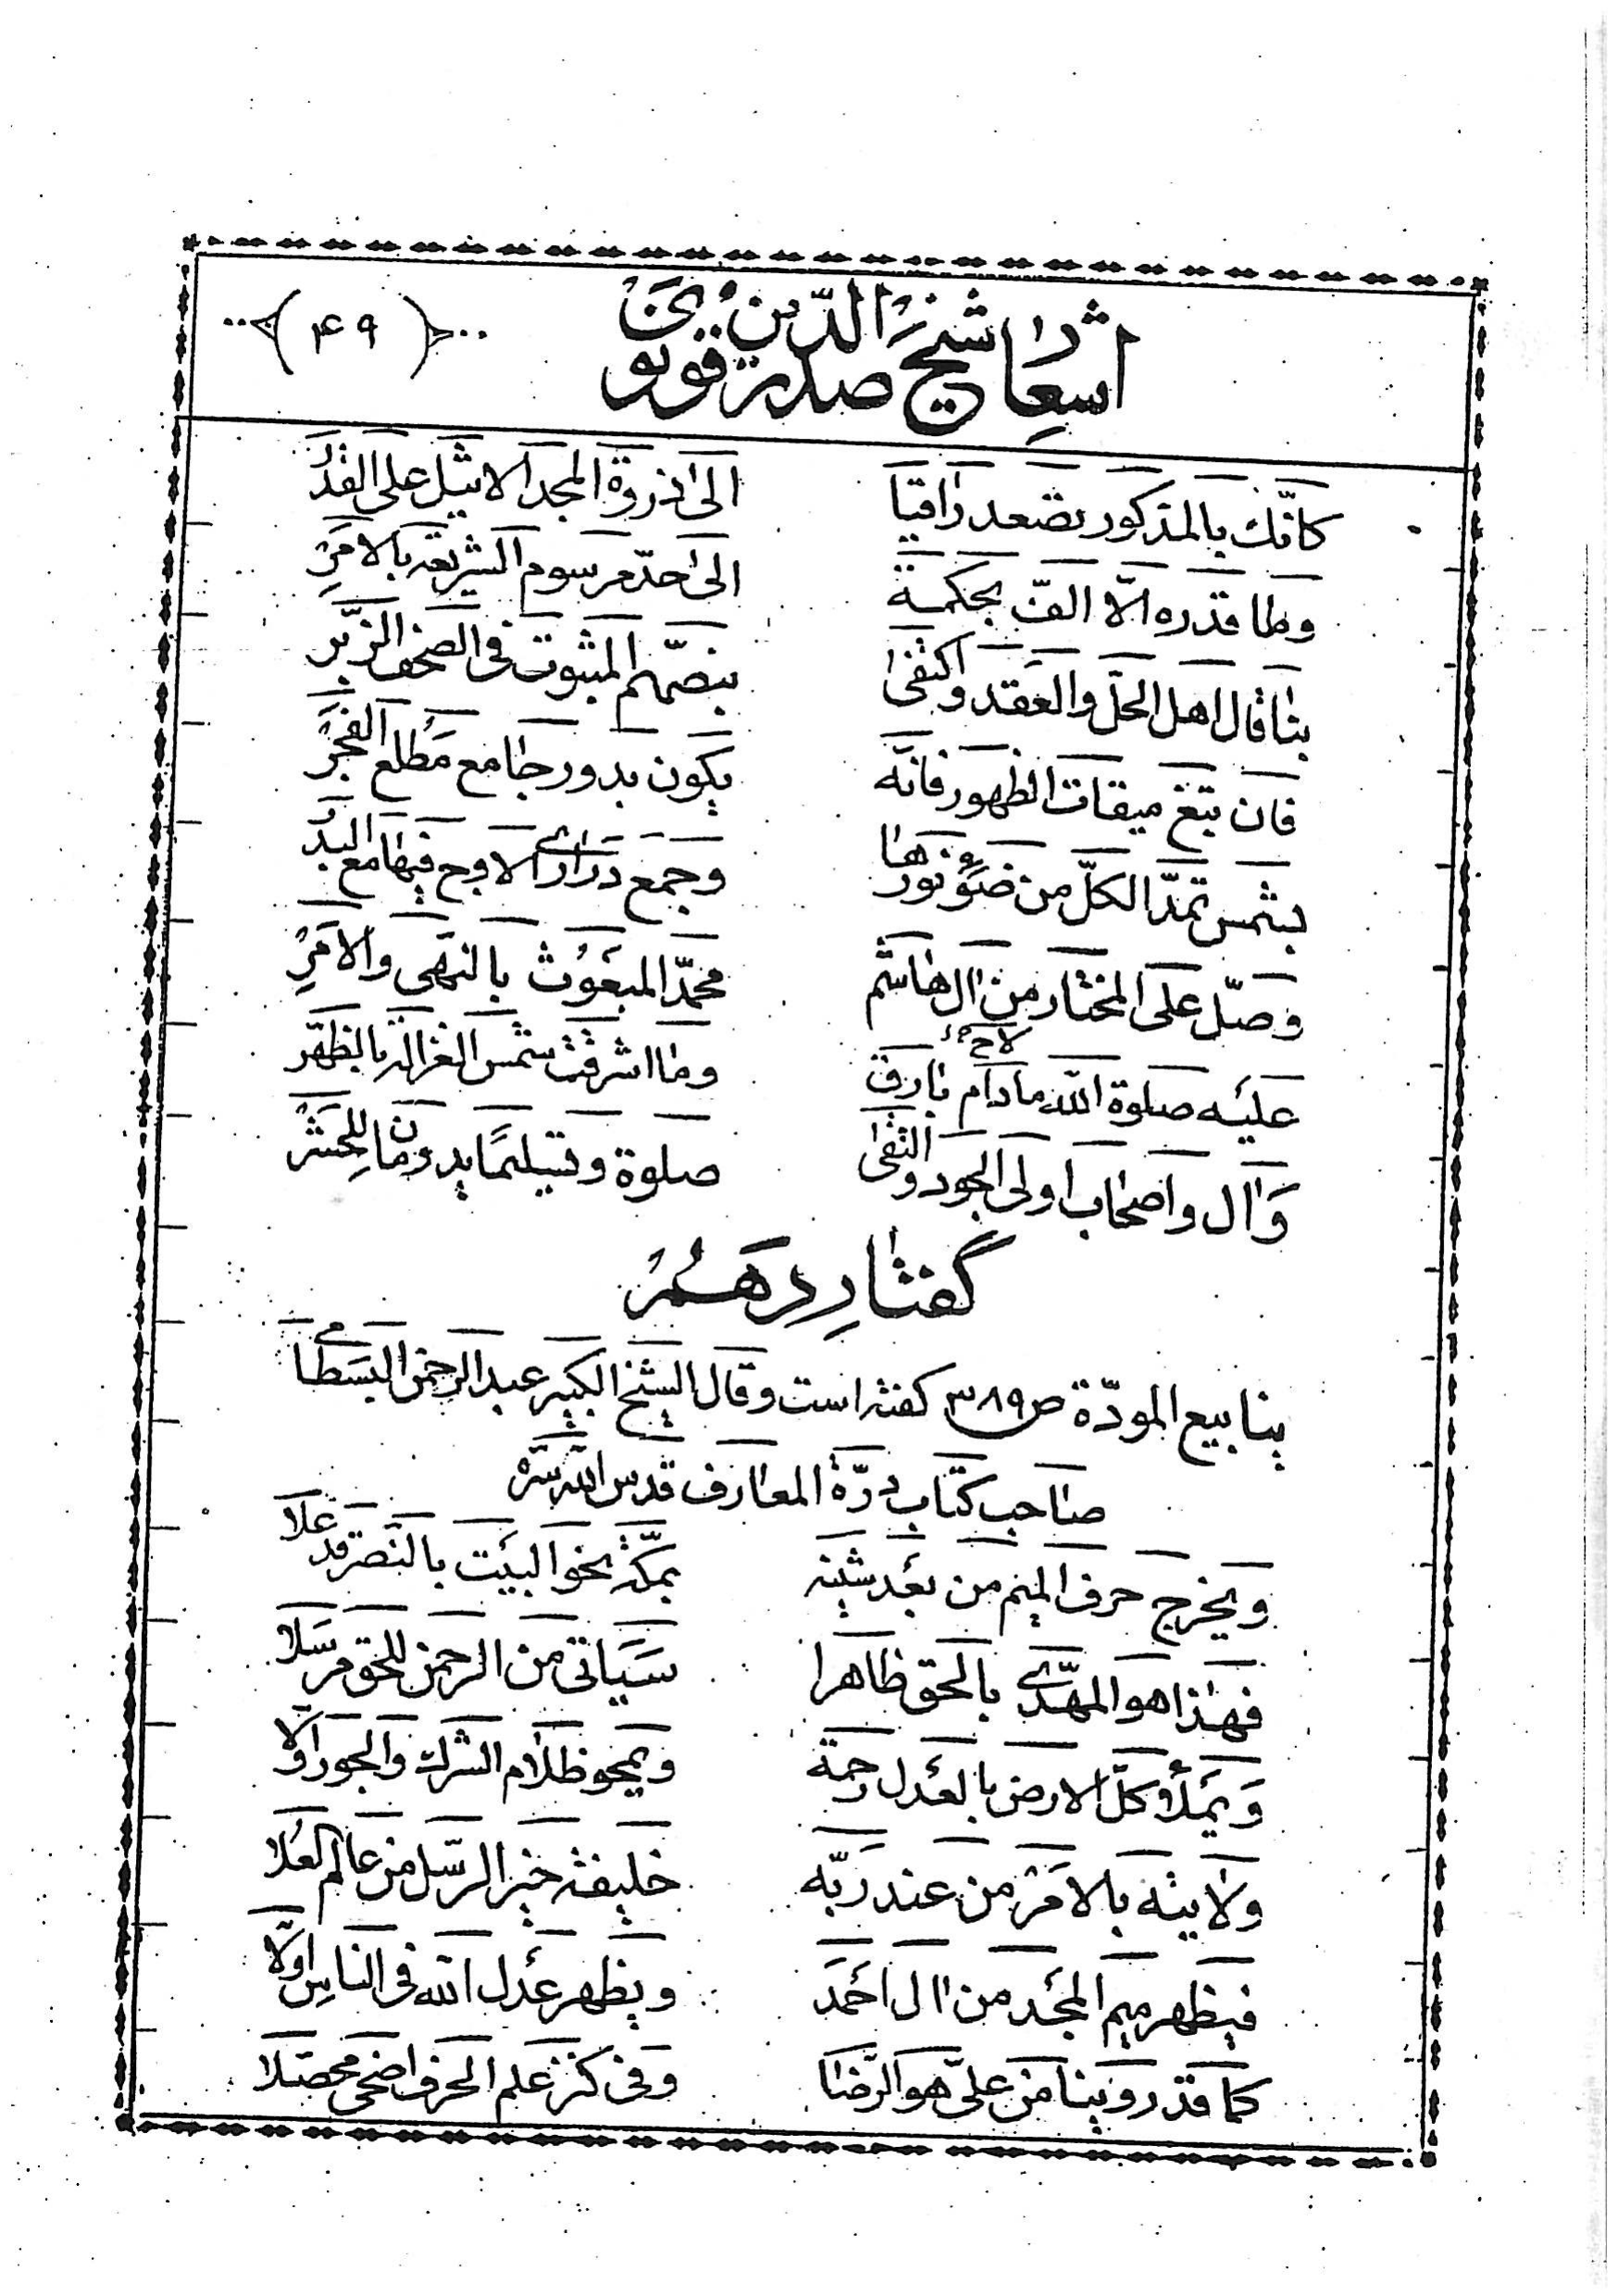 اشعار شیخ صدر الدین قونوی
﴿ ۴۹ ﴾
كانّك بالمذكور تصعد راقيا الى ذروة المجد الاثيل على القدر
وما قدره الّا الف بحكمة الى حدّ مرسوم الشريعة بالامر
بنا قال اهل الحلّ والعقد واكتفى بنصّهم المثبوت فى الصحف الزّبر
فان تبغ ميقات الظهور فانّه يكون بدور جامع مطلع الفجر
بشمس تمدّ الكلّ من ضوء نورها وجمع درارى الاوج فيها مع البدر
وصلّ على المختار من آل هاشم محمّد المبعوث بالنهى والامر
عليه صلوة الله ما دام بارق وما اشرقت شمس الغزالة بالظهر
لاح
وآل واصحاب اولى الجود والتقى صلوة وتسليما يدومان للحشر
گفتار دهم
ينابيع المودّة ص ۳۸۹ گفته است وقال الشيخ الكبير عبد الرحمن البسطامى
صاحب كتاب درّة المعارف قدس الله سرّه
ويخرج حرف الميم من بعد شينه بمكّة نحو البيت بالنّصر قد علا
فهذا هو المهدى بالحق ظاهرا سياتى من الرحمن للحق مرسلا
ويملأ كلّ الارض بالعدل رحمة ويمحو ظلام الشرك والجور اوّلا
ولايته بالامر من عند ربّه خليفة خير الرسل من عالم العلا
فيظهر ميم المجد من آل احمد ويظهر عدل الله فى الناس اوّلا
كما قد روينا من علىّ هو الرّضا وفى كنز علم الحرف اضحى محصّلا